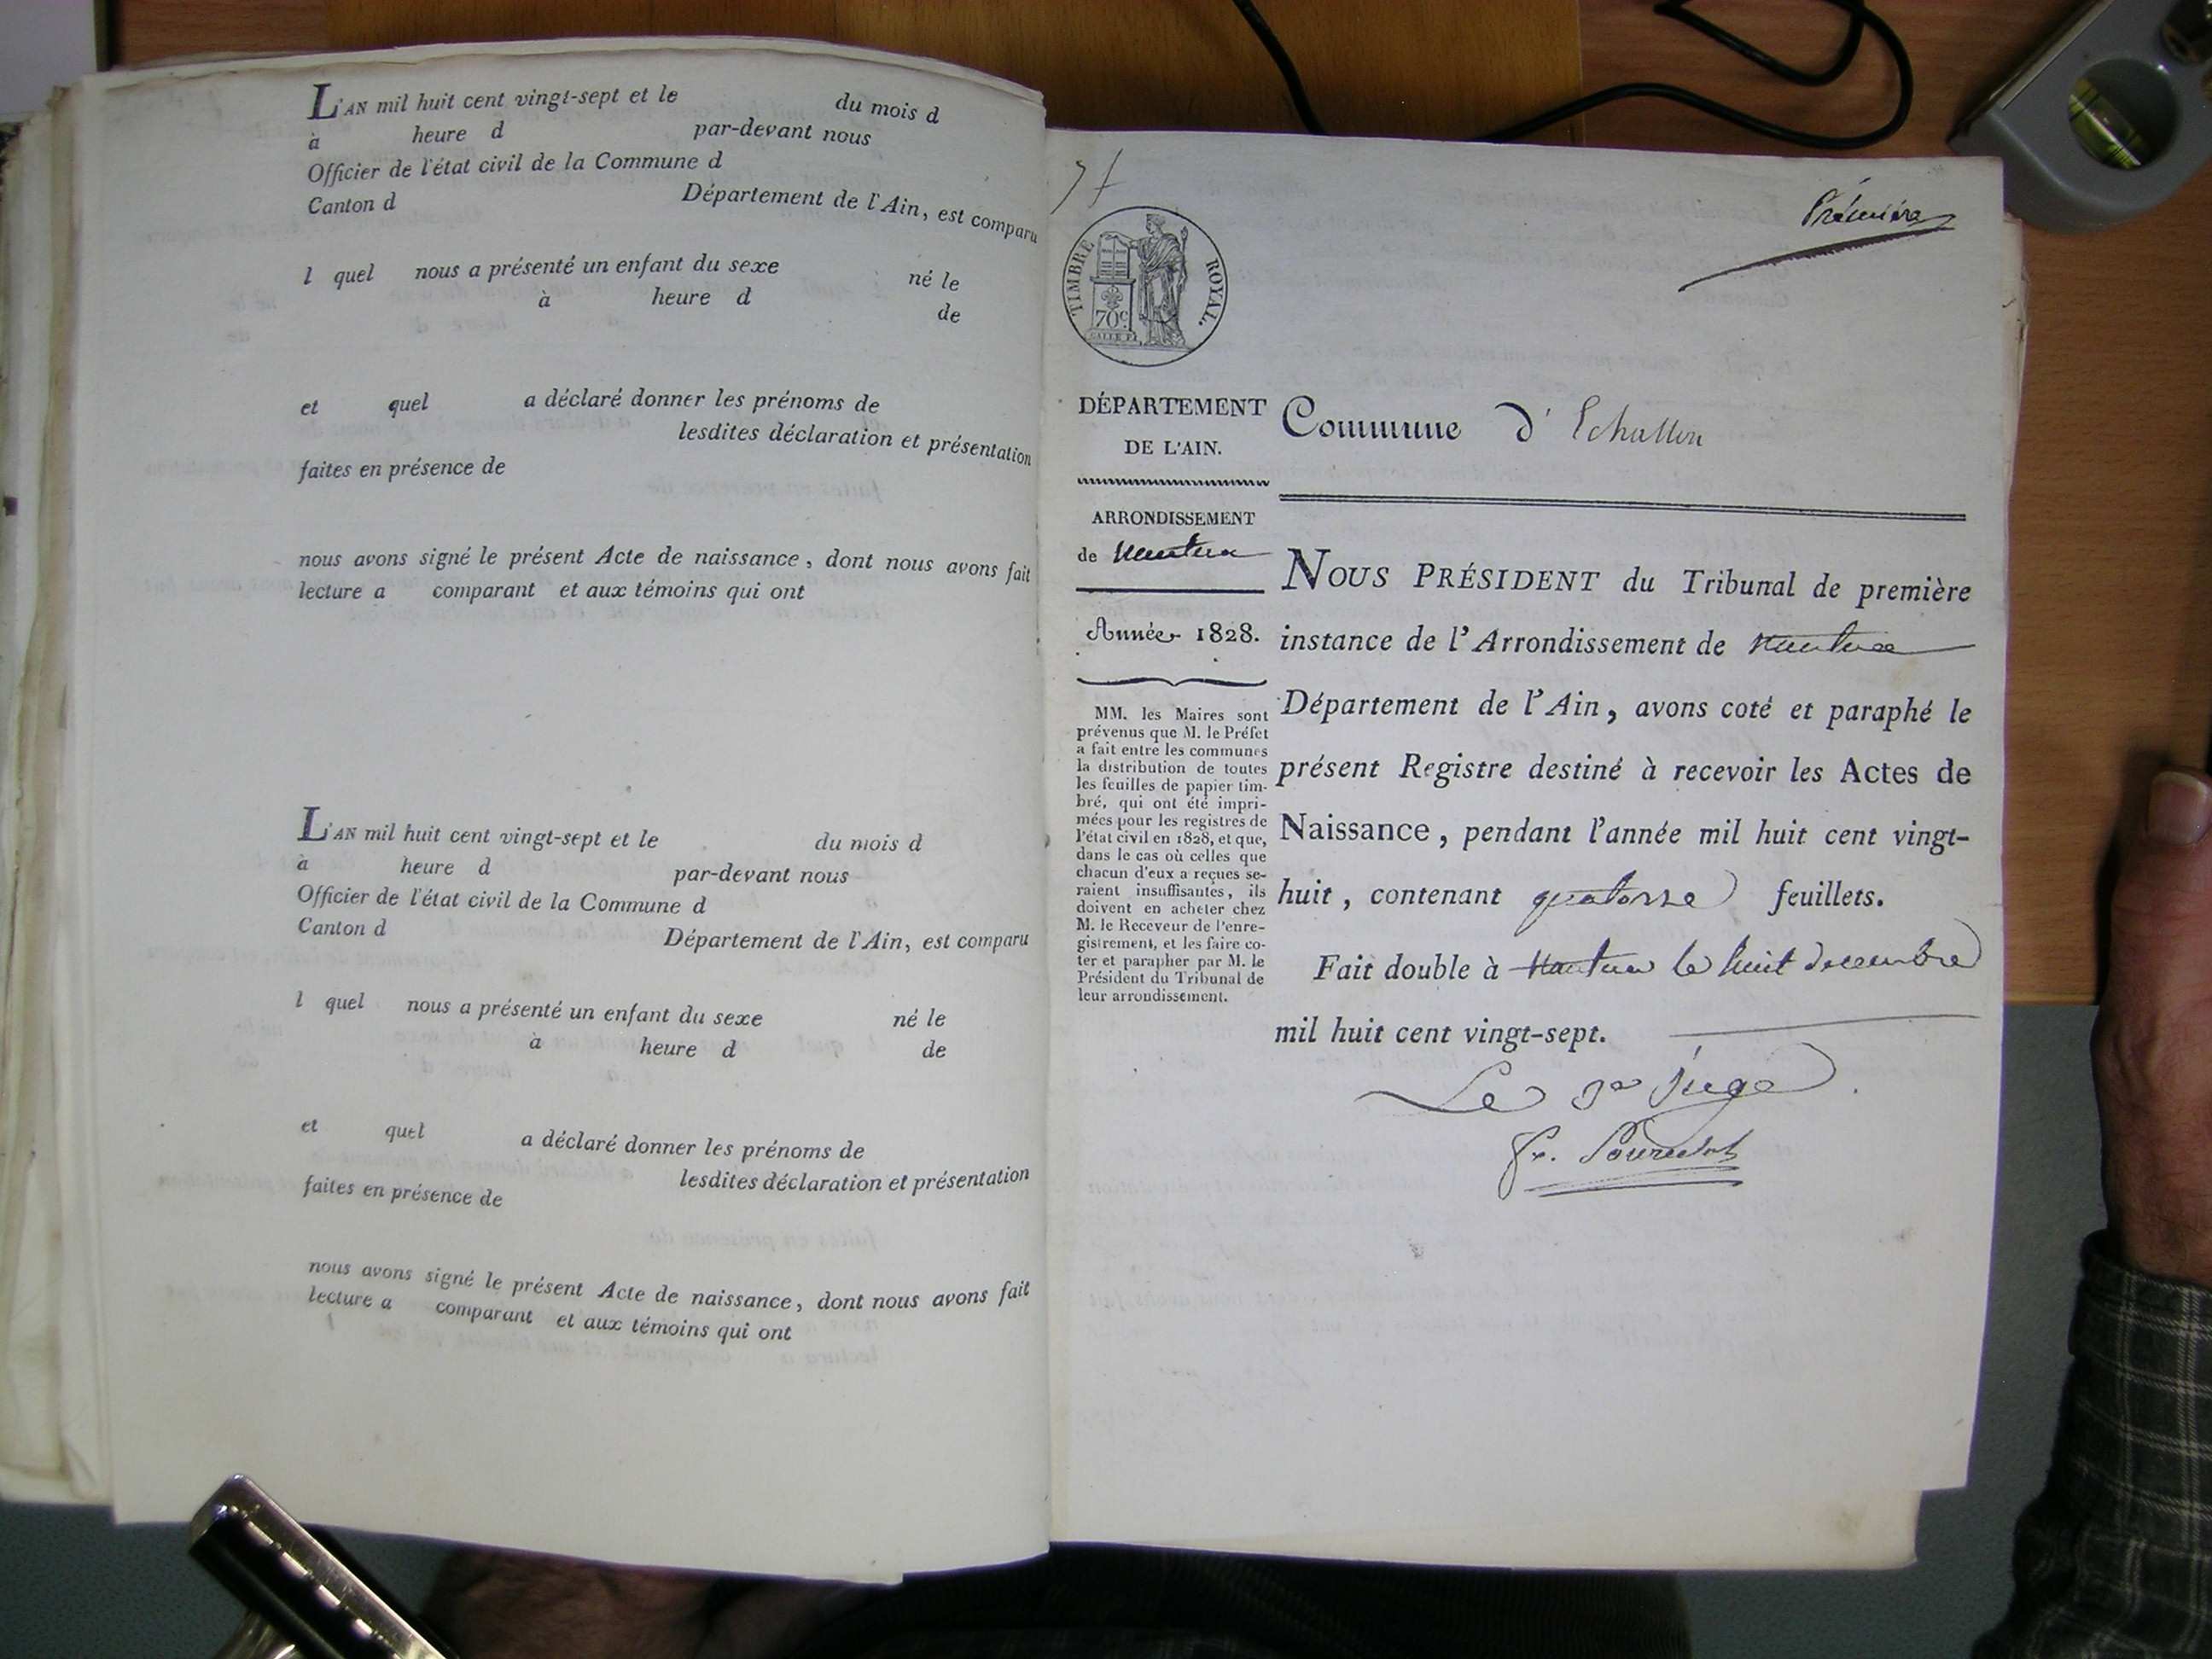 L'AN mil huit cent vingt-sept et le du mois d
à heure d par-devant nous
Officier de l'état civil de la Commune d
Canton d Département de l'Ain, est comparu
l quel nous a présenté un enfant du sexe né le
à heure d de
et quel a déclaré donner les prénoms de
lesdites déclaration et présentation
faites en présence de
nous avons signé le présent Acte de naissance, dont nous avons fait
lecture a comparant et aux témoins qui ont
L'AN mil huit cent vingt-sept et le du mois d
à heure d par-devant nous
Officier de l'état civil de la Commune d
Canton d Département de l'Ain, est comparu
l quel nous a présenté un enfant du sexe né le
à heure d de
et quel a déclaré donner les prénoms de
lesdites déclaration et présentation
faites en présence de
nous avons signé le présent Acte de naissance, dont nous avons fait
lecture a comparant et aux témoins qui ont
Première
TIMBRE ROYAL.
70c.
DÉPARTEMENT
DE L'AIN.
ARRONDISSEMENT
de Nantua
Année 1828.
MM. les Maires sont
prévenus que M. le Préfet
a fait entre les communes
la distribution de toutes
les feuilles de papier tim-
bré, qui ont été impri-
mées pour les registres de
l'état civil en 1828, et que,
dans le cas où celles que
chacun d'eux a reçues se-
raient insuffisantes, ils
doivent en acheter chez
M. le Receveur de l'enre-
gistrement, et les faire co-
ter et parapher par M. le
Président du Tribunal de
leur arrondissement.
Commune d'Echallon
NOUS PRÉSIDENT du Tribunal de première
instance de l'Arrondissement de Nantua
Département de l'Ain, avons coté et paraphé le
présent Registre destiné à recevoir les Actes de
Naissance, pendant l'année mil huit cent vingt-
huit, contenant quatorze feuillets.
Fait double à Nantua le huit decembre
mil huit cent vingt-sept.
Le juge